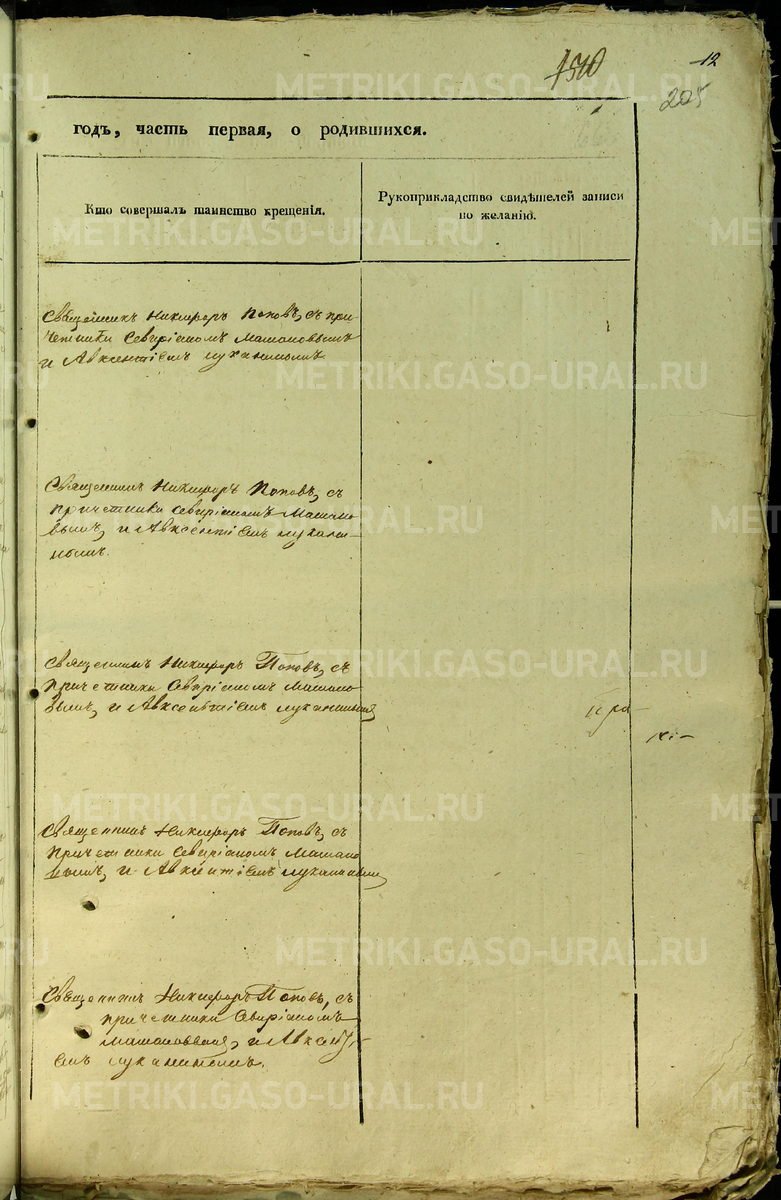 12
205
годъ, часть первая, о родившихся.
Кто совершалъ таинство крещенія.
Рукоприкладство свидѣтелей записи
по желанію.
Священникъ Никифоръ Поповъ, съ при
четники Севиріаномъ
и Авксентіемъ Луканинымъ
Священникъ Никифоръ Поповъ, съ
причетники Севиріаномъ
вымъ, и Авксентіемъ Лукани-
нымъ.
Священникъ Никифоръ Поповъ, съ
причетники Севиріаномъ
вымъ, и Авксентіемъ Луканинымъ
Священникъ Никифоръ Поповъ, съ
причетники Севиріаномъ
вымъ, и Авксентіемъ Луканинымъ
Священникъ Никифоръ Поповъ, съ
причетники Севиріаномъ
и Авксенті-
емъ Луканинымъ.
METRIKI.GASO-URAL.RU